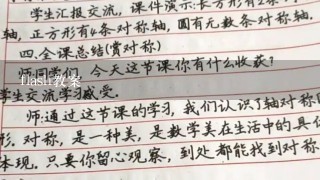 学生汇报交流,课件演示:长方形有2条
轴,正方形有4条对称轴,圆有无数条对称轴.
四.全课总结(赏对称)
师:同学们,今天这节课你有什么收获?
flash教案
学生交流学习感受.
师:通过这节课的学习,我们认识了轴对称图
形.对称,是一种美,是数学美在生活中的具体
体现.只要你留心观察,到处都能找到对称